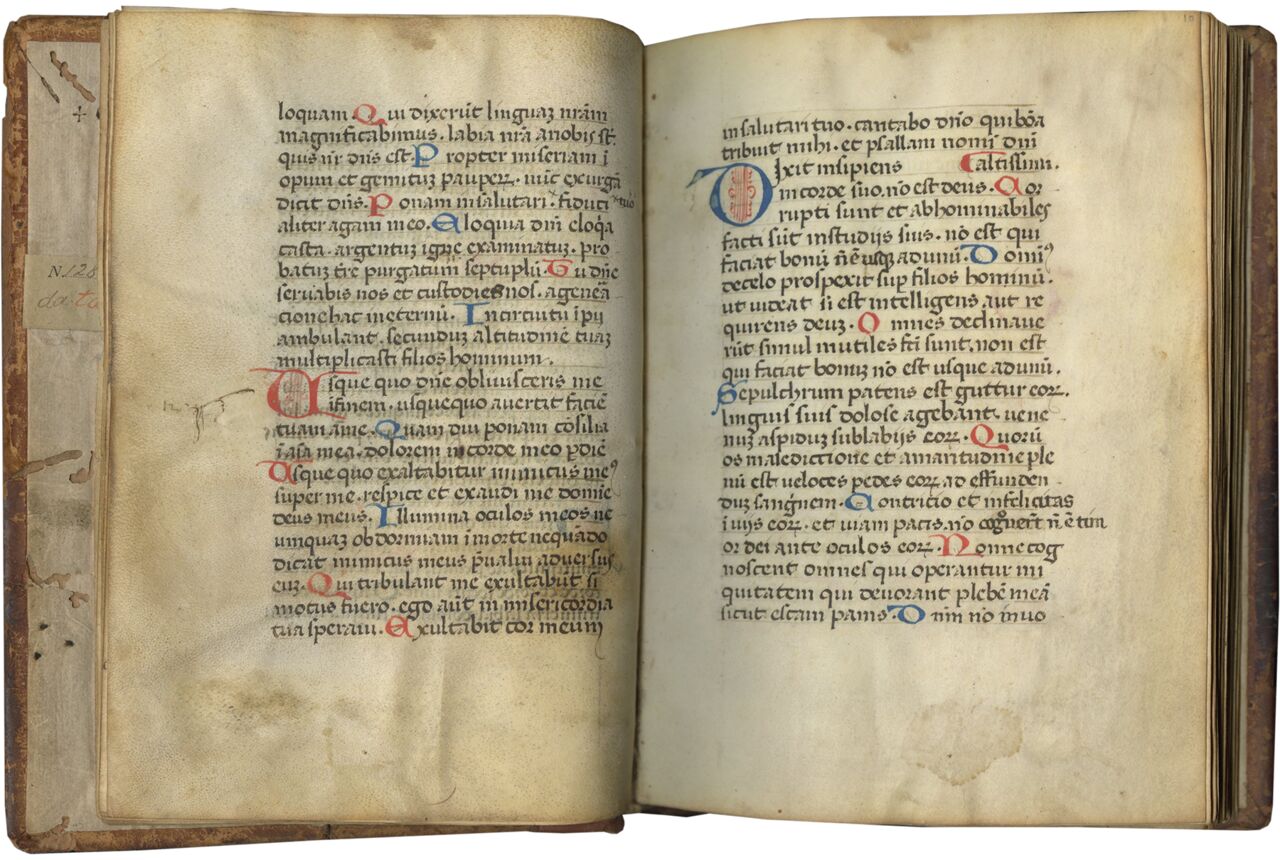 +
N. 128
data
loquam. Qui dixerūt linguaꝫ nr̄am
magnificabimus. labia nr̄a anobis st̄.
quis nr̄ dn̄s est. Propter miseriam ī
opum et gemituꝫ pauperꝝ. nūc exurgā
dicit dn̄s. Ponam insalutari. fiduci
tuo
aliter agam ineo. Eloquia dn̄i eloq̄a
casta. argentuꝫ igne examinatuꝫ. pro
batuꝫ tr̄e purgatum septuplū. Tu dn̄e
seruabis nos et custodies nos. agen̄eā
cione hac ineternū. In circuitu īpij
ambulant. secunduꝫ altitudinē tuaꝫ
multiplicasti filios hominum.
Usque quo dn̄e obliuisceris me
īfinem. usquequo auertit faciē
tuam ame. Quam diu ponam cōsilia
īaīa mea. dolorem incorde meo p̄ diē
Usque quo exaltabitur inimicus meꝰ
super me. respice et exaudi me domīe
deus meus. Illumina oculos meos ne
umquaꝫ obdormiam īmorte nequādo
dicat inimicus meus p̄ualui aduersus
euꝫ. Qui tribulant me exultabūt si
motus fuero. ego aūt in misericordia
tua speraui. Exultabit cor meum
10
in salutari tuo. cantabo dn̄o qui bōa
tribuit mihi. et psallam nomī dn̄i
Dixit insipiens altissimi.
in corde suo. nō est deus. Cor
rupti sunt et abhominabiles
facti sūt instudijs suis. nō est qui
faciat bonū n̄ ē usqꝫ ad unū. Domīꝰ
decelo prospexit sup̄ filios hominū.
ut uideat si est intelligens aut re
quirens deuꝫ. Omnes declinaue
rūt simul inutiles fc̄i sunt. non est
qui faciat bonuꝫ nō est usque adunū.
Sepulchrum patens est guttur eoꝝ.
linguis suis dolose agebant. uene
nuꝫ aspiduꝫ sublabijs eoꝝ. Quorū
os maledictione et amaritudine ple
nū est ueloces pedes eoꝝ ad effunden
duꝫ sanḡinem. Contricio et infelicitas
ī uijs eoꝝ. et uiam pacis. nō cognouert̄ n̄ ē tim
or dei ante oculos eoꝝ. Nonne cog
noscent omnes qui operantur ini
quitatem qui deuorant plebē meā
sicut escam panis. Dn̄m nō inuo